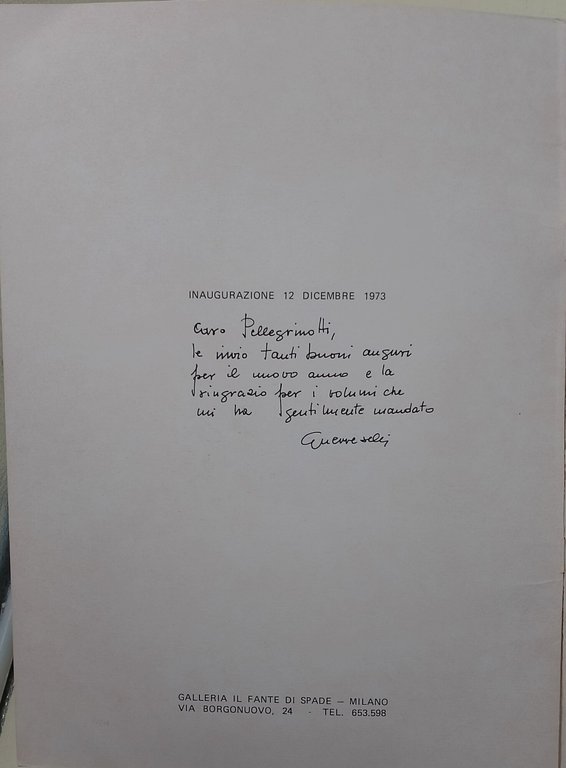 INAUGURAZIONE 12 DICEMBRE 1973
Caro Pellegrinotti,
le invio tanti buoni auguri
per il nuovo anno e la
ringrazio per i volumi che
mi ha gentilmente mandato
Guerreschi
GALLERIA IL FANTE DI SPADE — MILANO
VIA BORGONUOVO, 24 - TEL. 653.598